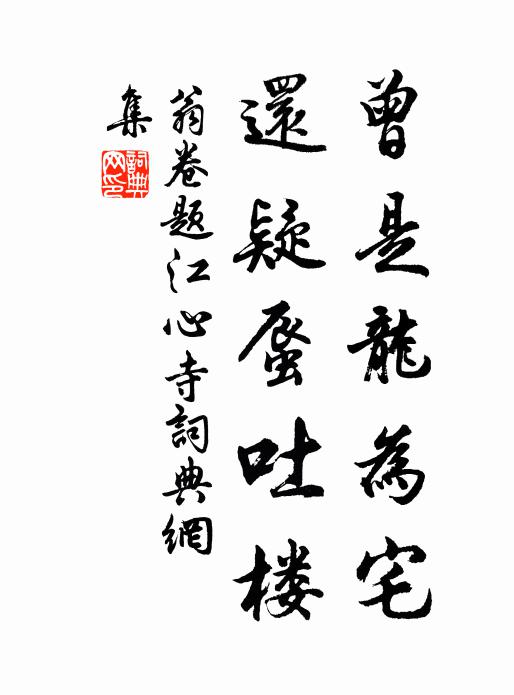 曾是龍為宅
還疑蜃吐楼
翁卷題江心寺詞典網
集
詞典网印